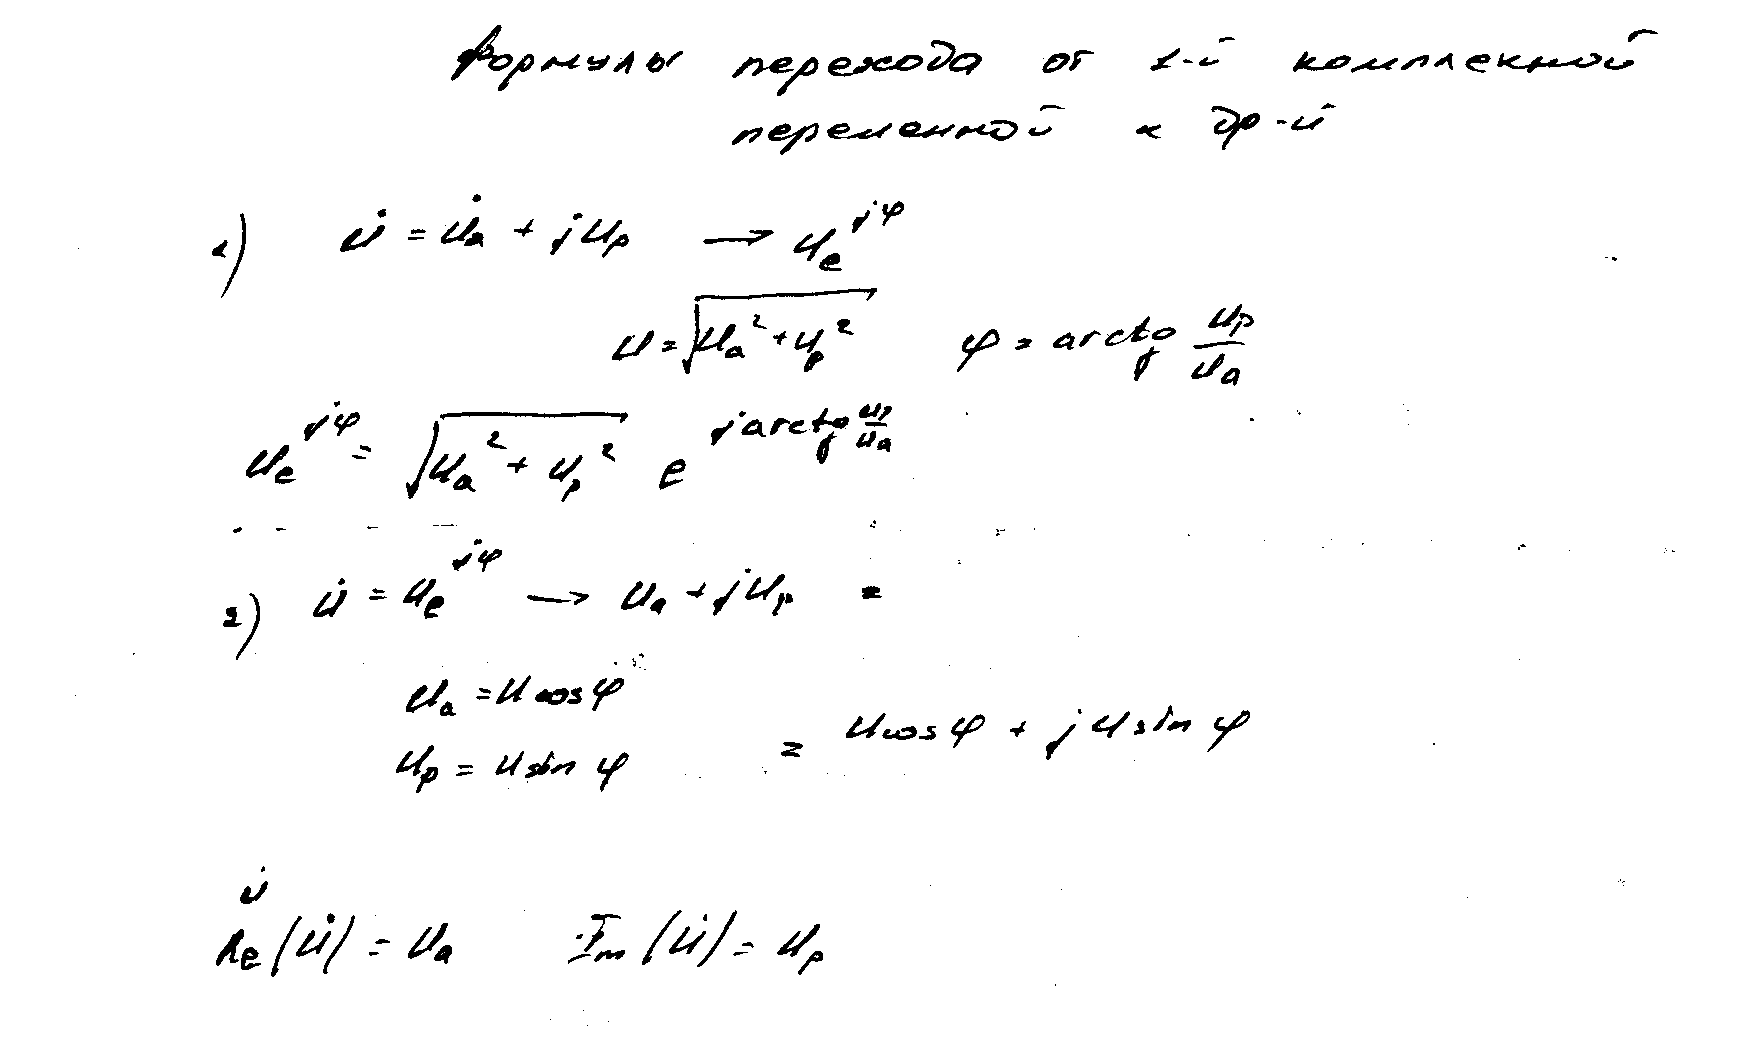 Формулы перехода от 1-й комплексной
переменной к др-й
1) U̇ = U̇a + jUp → Ue^jφ
U = √(Ua² + Up²) φ = arctg Up/Ua
Ue^jφ = √(Ua² + Up²) e^(j arctg Up/Ua)
2) U̇ = Ue^jφ → Ua + jUp =
Ua = U cos φ
Up = U sin φ = U cos φ + jU sin φ
U̇
Re(U̇) = Ua Im(U̇) = Up